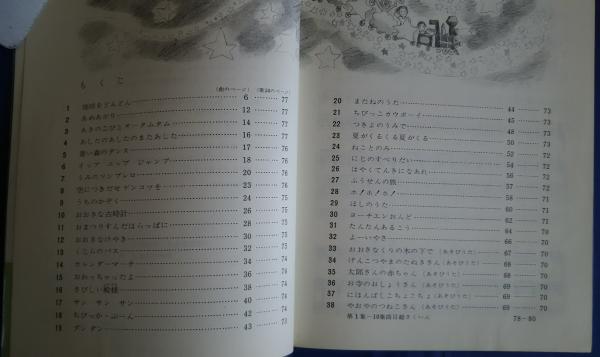 もくじ
(曲のページ) (歌詞のページ)
1 地球をどんどん 6 77
2 あめあがり 12 77
3 あきのこびとオータムタム 14 77
4 あしたのあしたのまたあした 16 77
5 青い森のダンス 17 76
6 イップ・ニップ ジャンプ 18 76
7 うみのマンブレロ 20 76
8 空につきだせゲンコツを 23 76
9 うちのかぞく 24 76
10 おおきな古時計 26 75
11 おまつりすんだはらっぱに 28 75
12 おおきなけやき 30 75
13 くじらのバス 32 75
14 カレンダーマーチ 34 75
15 おわっちゃったよ 36 74
16 さびしい粉雪 38 74
17 サン サン サン 40 74
18 ちびっか・ぶーん 42 74
19 ダンダン 43 73
20 またねのうた 44 73
21 ちびっこカウボーイ 45 73
22 つきよのうみで 48 73
23 夏がくるくる夏がくる 50 73
24 ねことのみ 52 72
25 にじのすべりだい 54 72
26 はやくてんきになあれ 56 72
27 ふうせんの旅 57 72
28 ホ!ホ!ホ! 58 71
29 ほしのうた 60 71
30 ヨーチエンおんど 62 71
31 たんたんあるこう 64 70
32 よーいやさ 66 70
33 おおきなくりの木の下で (あそびうた) 68 70
34 げんこつやまのたぬきさん (あそびうた) 68 70
35 太郎さんの赤ちゃん (あそびうた) 68 70
36 お寺のおしょうさん (あそびうた) 69 70
37 にほんばしこちょこちょ (あそびうた) 69 70
38 やおやのつねこさん (あそびうた) 69 70
第1集—10集曲目総さくいん 78—80